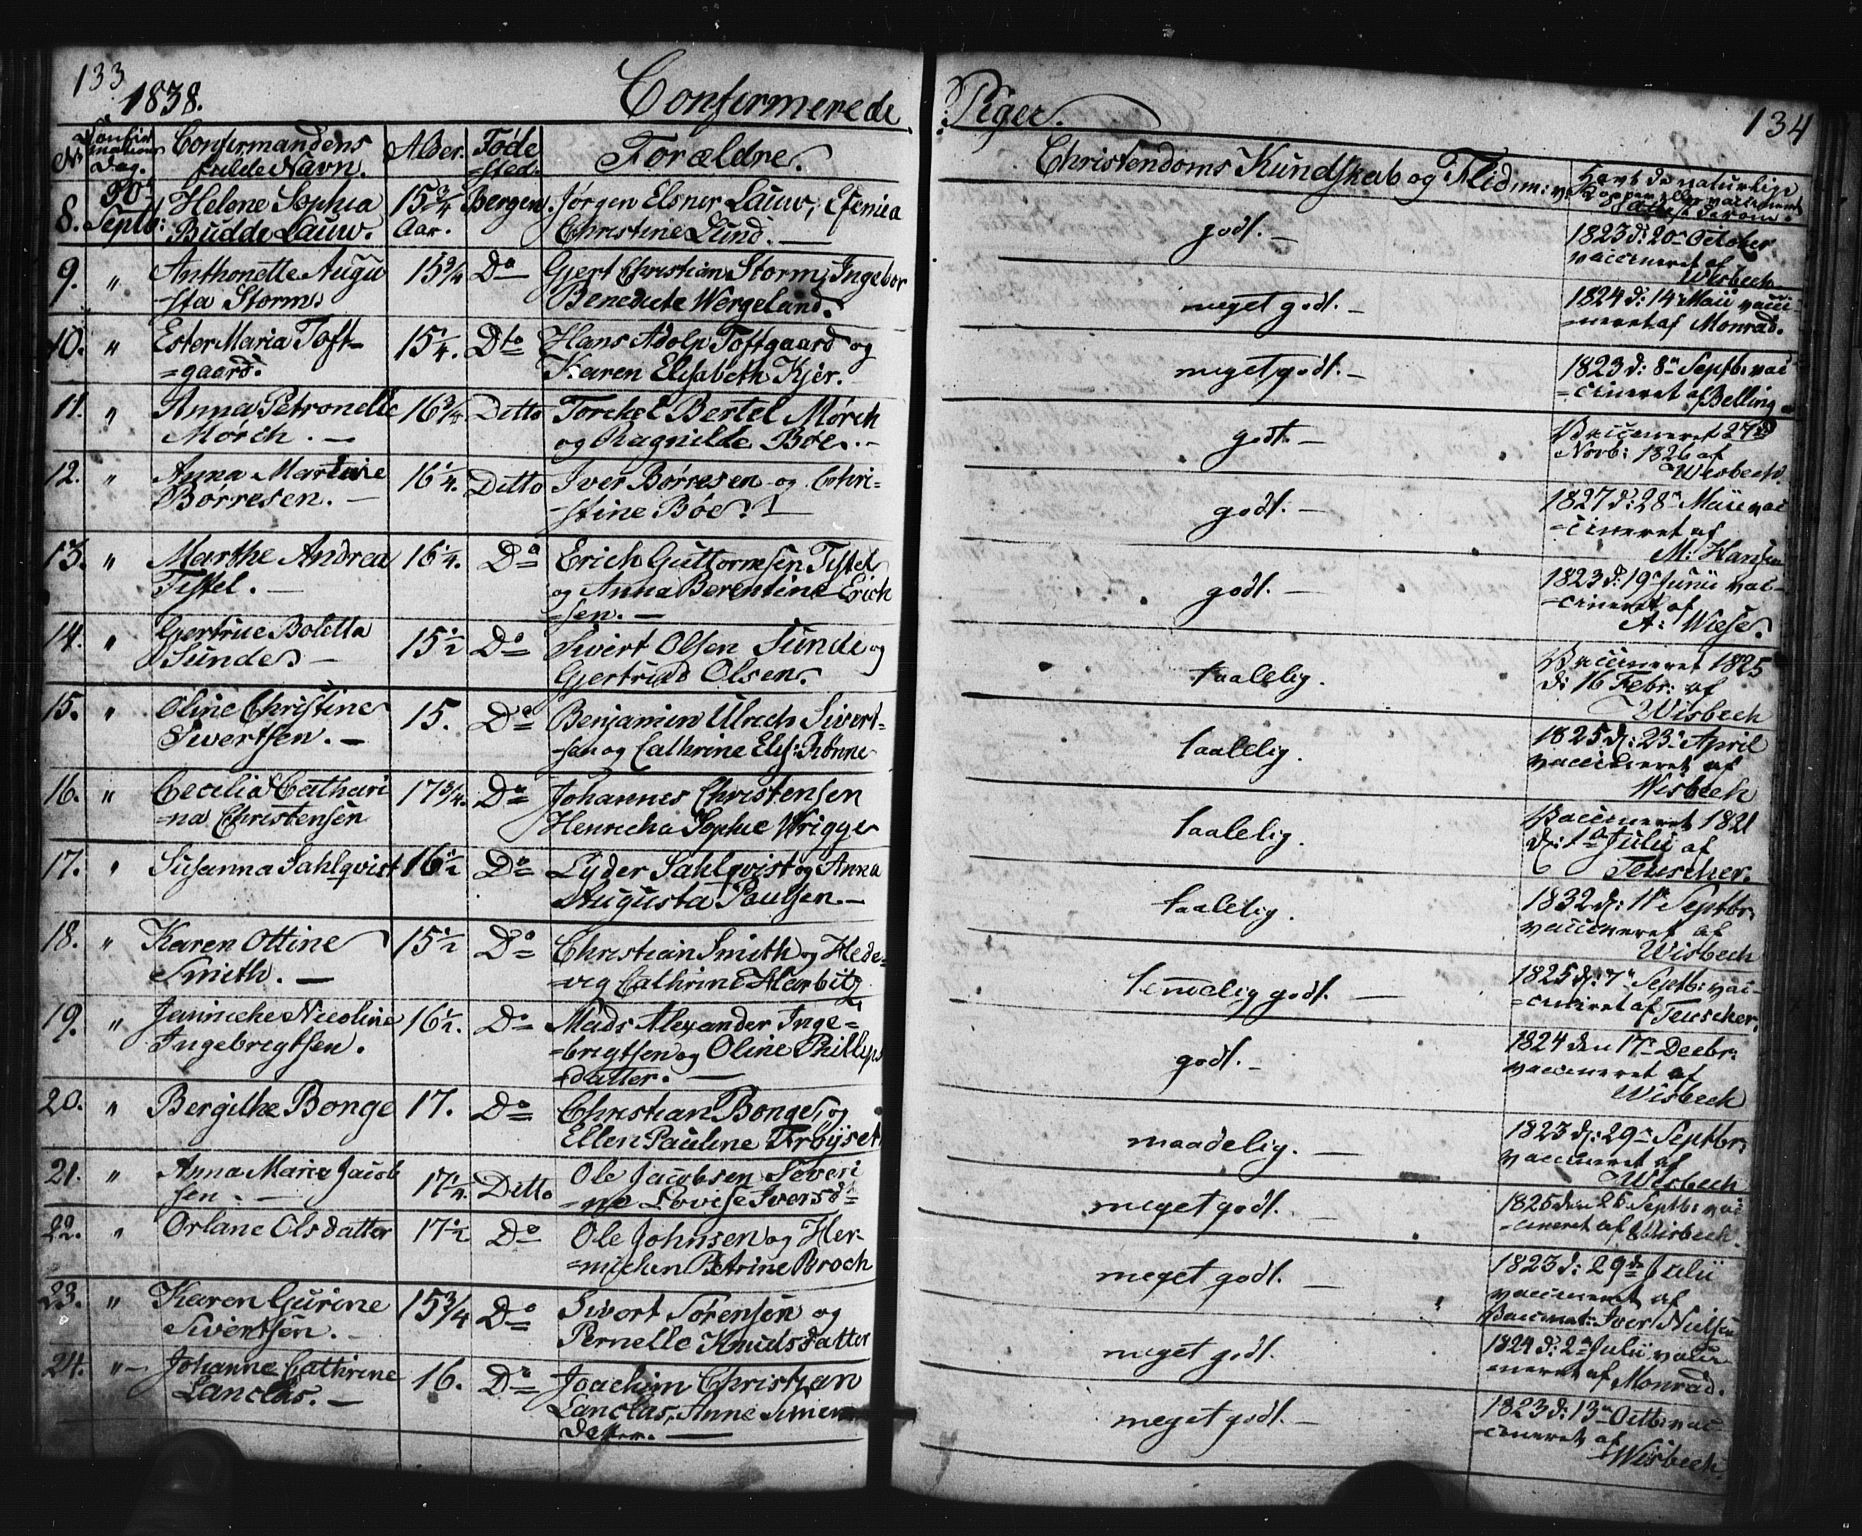 133
134
1838.
Confirmerede Piger.
No
Confir
mations
Dag.
Confirmandens
fulde Navn.
Alder.
Føde
-sted.
Forældre.
Christendoms Kundskab og Flid m: v.
Havt de naturlige
Kopper eller vaccineret
8. 30te Septb: Helene Sophia
Budde Lauw.
15 3/4
Aar.
Bergen.
Jørgen Elsner Lauw, Efemia
Christine Lund. —
godt. —
1823 d: 20de October
vaccineret af
Wisbech
9. " Anthonette Augu
-sta Storm.
15 3/4 Do
Gjert Christian Storm, Ingebor
Benedicte Wergeland.
meget godt. —
1824 d: 14 Maii vacci
=neret af Monrad.
10. " Ester Maria Toft=
=gaard.
15 1/4. Dto
Hans Adolp Toftgaard og
Karen Elisabeth Kjer.
meget godt. —
1823 d: 8de Septb: vac
=cineret af Belling
11. " Anna Petronelle
Mørch. —
16 3/4 Ditto
Torckel Bertel Mørch
og Ragnilde Bøe. —
godt —
Vaccineret 27de
Novb: 1826 af
Wisbech.
12. " Anna Martine
Børresen. —
16 1/4. Ditto
Iver Børresen og Chri=
=stine Bøe. —
godt. —
1827 d: 28de Maii vac
=cineret af
M: Hansen
13. " Marthe Andrea
Tistel. —
16 1/4. Do
Erich Guttormsen Tistel
og Anna Berentine Erich
=sen. —
godt. —
1823 d: 19de Junii vac=
=cineret af
A: Wiese.
14. " Gjertrue Boletta
Sunde —
15 1/2 Do
Sivert Olsen Sunde og
Gjertruid Olsen.
taalelig.
Vaccineret 1825
d: 16 Febr: af
Wisbech
15. " Oline Christine
Sivertsen. —
15. Do
Benjamin Ulrich Sivert=
=sen og Cathrine Elis: Rønne
taalelig.
1825 d: 23de April
vaccineret af
Wisbech
16. " Cecilia Cathari
=na Christensen
17 3/4. Do
Johannes Christensen
Henricha Sophie Wrigge
taalelig.
Vaccineret 1821
d: 1de Julii af
Teuscher.
17. " Susanna Sahlqvist
16 1/2 Do
Lyder Sahlqvist og Anna
Augusta Paulsen. —
taalelig.
1832 d: 11te Septbr:
vaccineret af
Wisbech
18. " Karen Ottine
Smith. —
15 1/2 Do
Christian Smith og Hede=
=vig Cathrine Harbitz
temmelig godt. —
1825 d: 7de Septb: vac=
=cineret af Teuscher.
19. " Jannicke Nicoline
Ingebrigtsen.
16 1/2. Do
Mads Alexander Inge=
=brigtsen og Oline Phillips
=datter. —
godt. —
1824 den 17de Decbr:
vaccineret af
Wisbech
20. " Bergithe Bonge
17. Do
Christian Bonge, og
Ellen Pauline Frøyset
maadelig. —
1823 d: 29de Septbr:
vaccineret af
Wisbech
21. " Anna Maria Jacob
sen. —
17 1/4. Ditto
Ole Jacobsen Severi
=ne Lovise Iversd=
meget godt. —
1825 den 26 Septb: vac
=cineret af Wisbech.
22. " Orlane Olsdatter
17 1/2 Do
Ole Johnsen og Her=
=michen Petrine Broch
meget godt. —
1823 d: 29de Julii
vaccineret af
Vaccinat: Iver Nielsen
23. " Karen Gurine
Sivertsen. —
15 3/4 Do
Sivert Sørensen og
Pernelle Knudsdatter
meget godt. —
1824 d: 2de Julii vacci
=neret af Monrad.
24. " — Johanne Cathrine
Lanclas. —
16. Do
Joachim Christian
Lanclas, Anne Simens
Datter. —
meget godt. —
1823 d: 13de Octb: vac
=cineret af
Wisbech